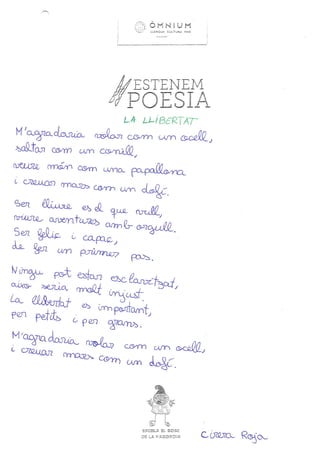 ÒMNIUM
LLENGUA CULTURA PAÍS
ESTENEM
POESIA
LA LLIBERTAT
M'agradaria volar com un ocell,
saltar com un conill,
veure món com una papallona
i creuar mars com un dofí.
Ser lliure es el que vull,
viure aventures amb orgull.
Ser feliç i capaç,
de fer un primer pas.
Ningu pot estar esclavitzat,
això seria molt injust.
La llibertat es important,
per petits i per grans.
M'agradaria volar com un ocell,
i creuar mars com un dofí.
ESCOLA EL BOSC
DE LA
Cirera Roja